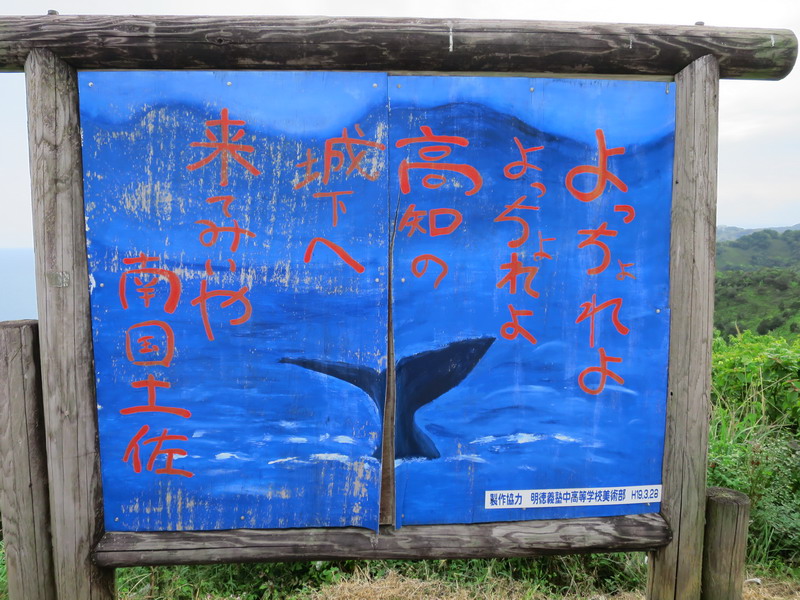 よっちょれよ
よっちょれよ
高知の
城下へ
来てみいや
南国土佐
製作協力 明徳義塾中高等学校美術部 H19.3.28